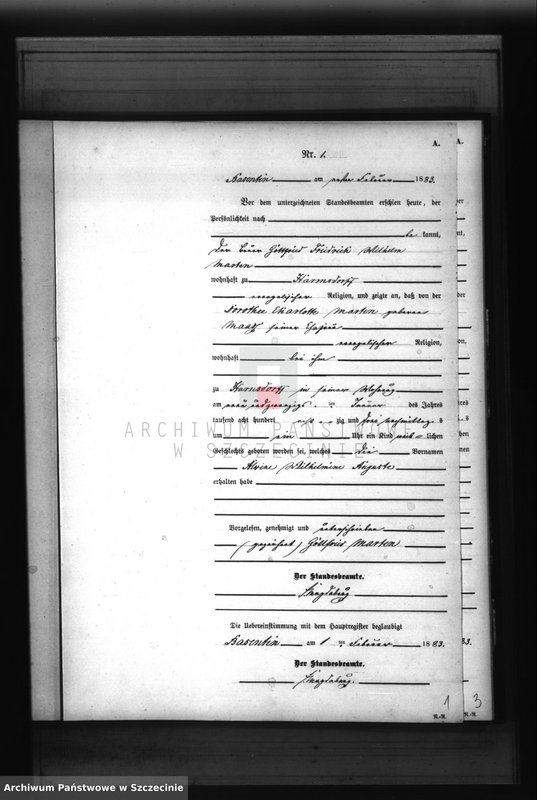 A.
Nr. 1.
Basentin am ersten Februar 1883.
Vor dem unterzeichneten Standesbeamten erschien heute, der
Persönlichkeit nach
be kannt,
Der Bauer Gottfried Friedrich Wilhelm
Marten
wohnhaft zu
evangelischer Religion, und zeigte an, daß von der
Dorothee Charlotte Marten geborene
Maaß seiner Ehefrau
evangelischer Religion,
wohnhaft bei ihm
zu in seiner Wohnung
am ten Januar des Jahres
tausend acht hundert acht zig und drei s
um ein Uhr ein Kind lichen
Geschlechts geboren worden sei, welches die Vornamen
Alvine Wilhelmine Auguste
erhalten habe
Vorgelesen, genehmigt und unterschrieben
(gezeichnet) Gottfried Marten
Der Standesbeamte.
Die Uebereinstimmung mit dem Hauptregister beglaubigt
Basentin am 1 ten Februar 1883.
Der Standesbeamte.
1
3
ARCHIWUM PAŃSTWOWE
W SZCZECINIE
Archiwum Państwowe w Szczecinie